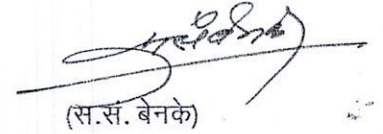 (स.सं. बेनके)